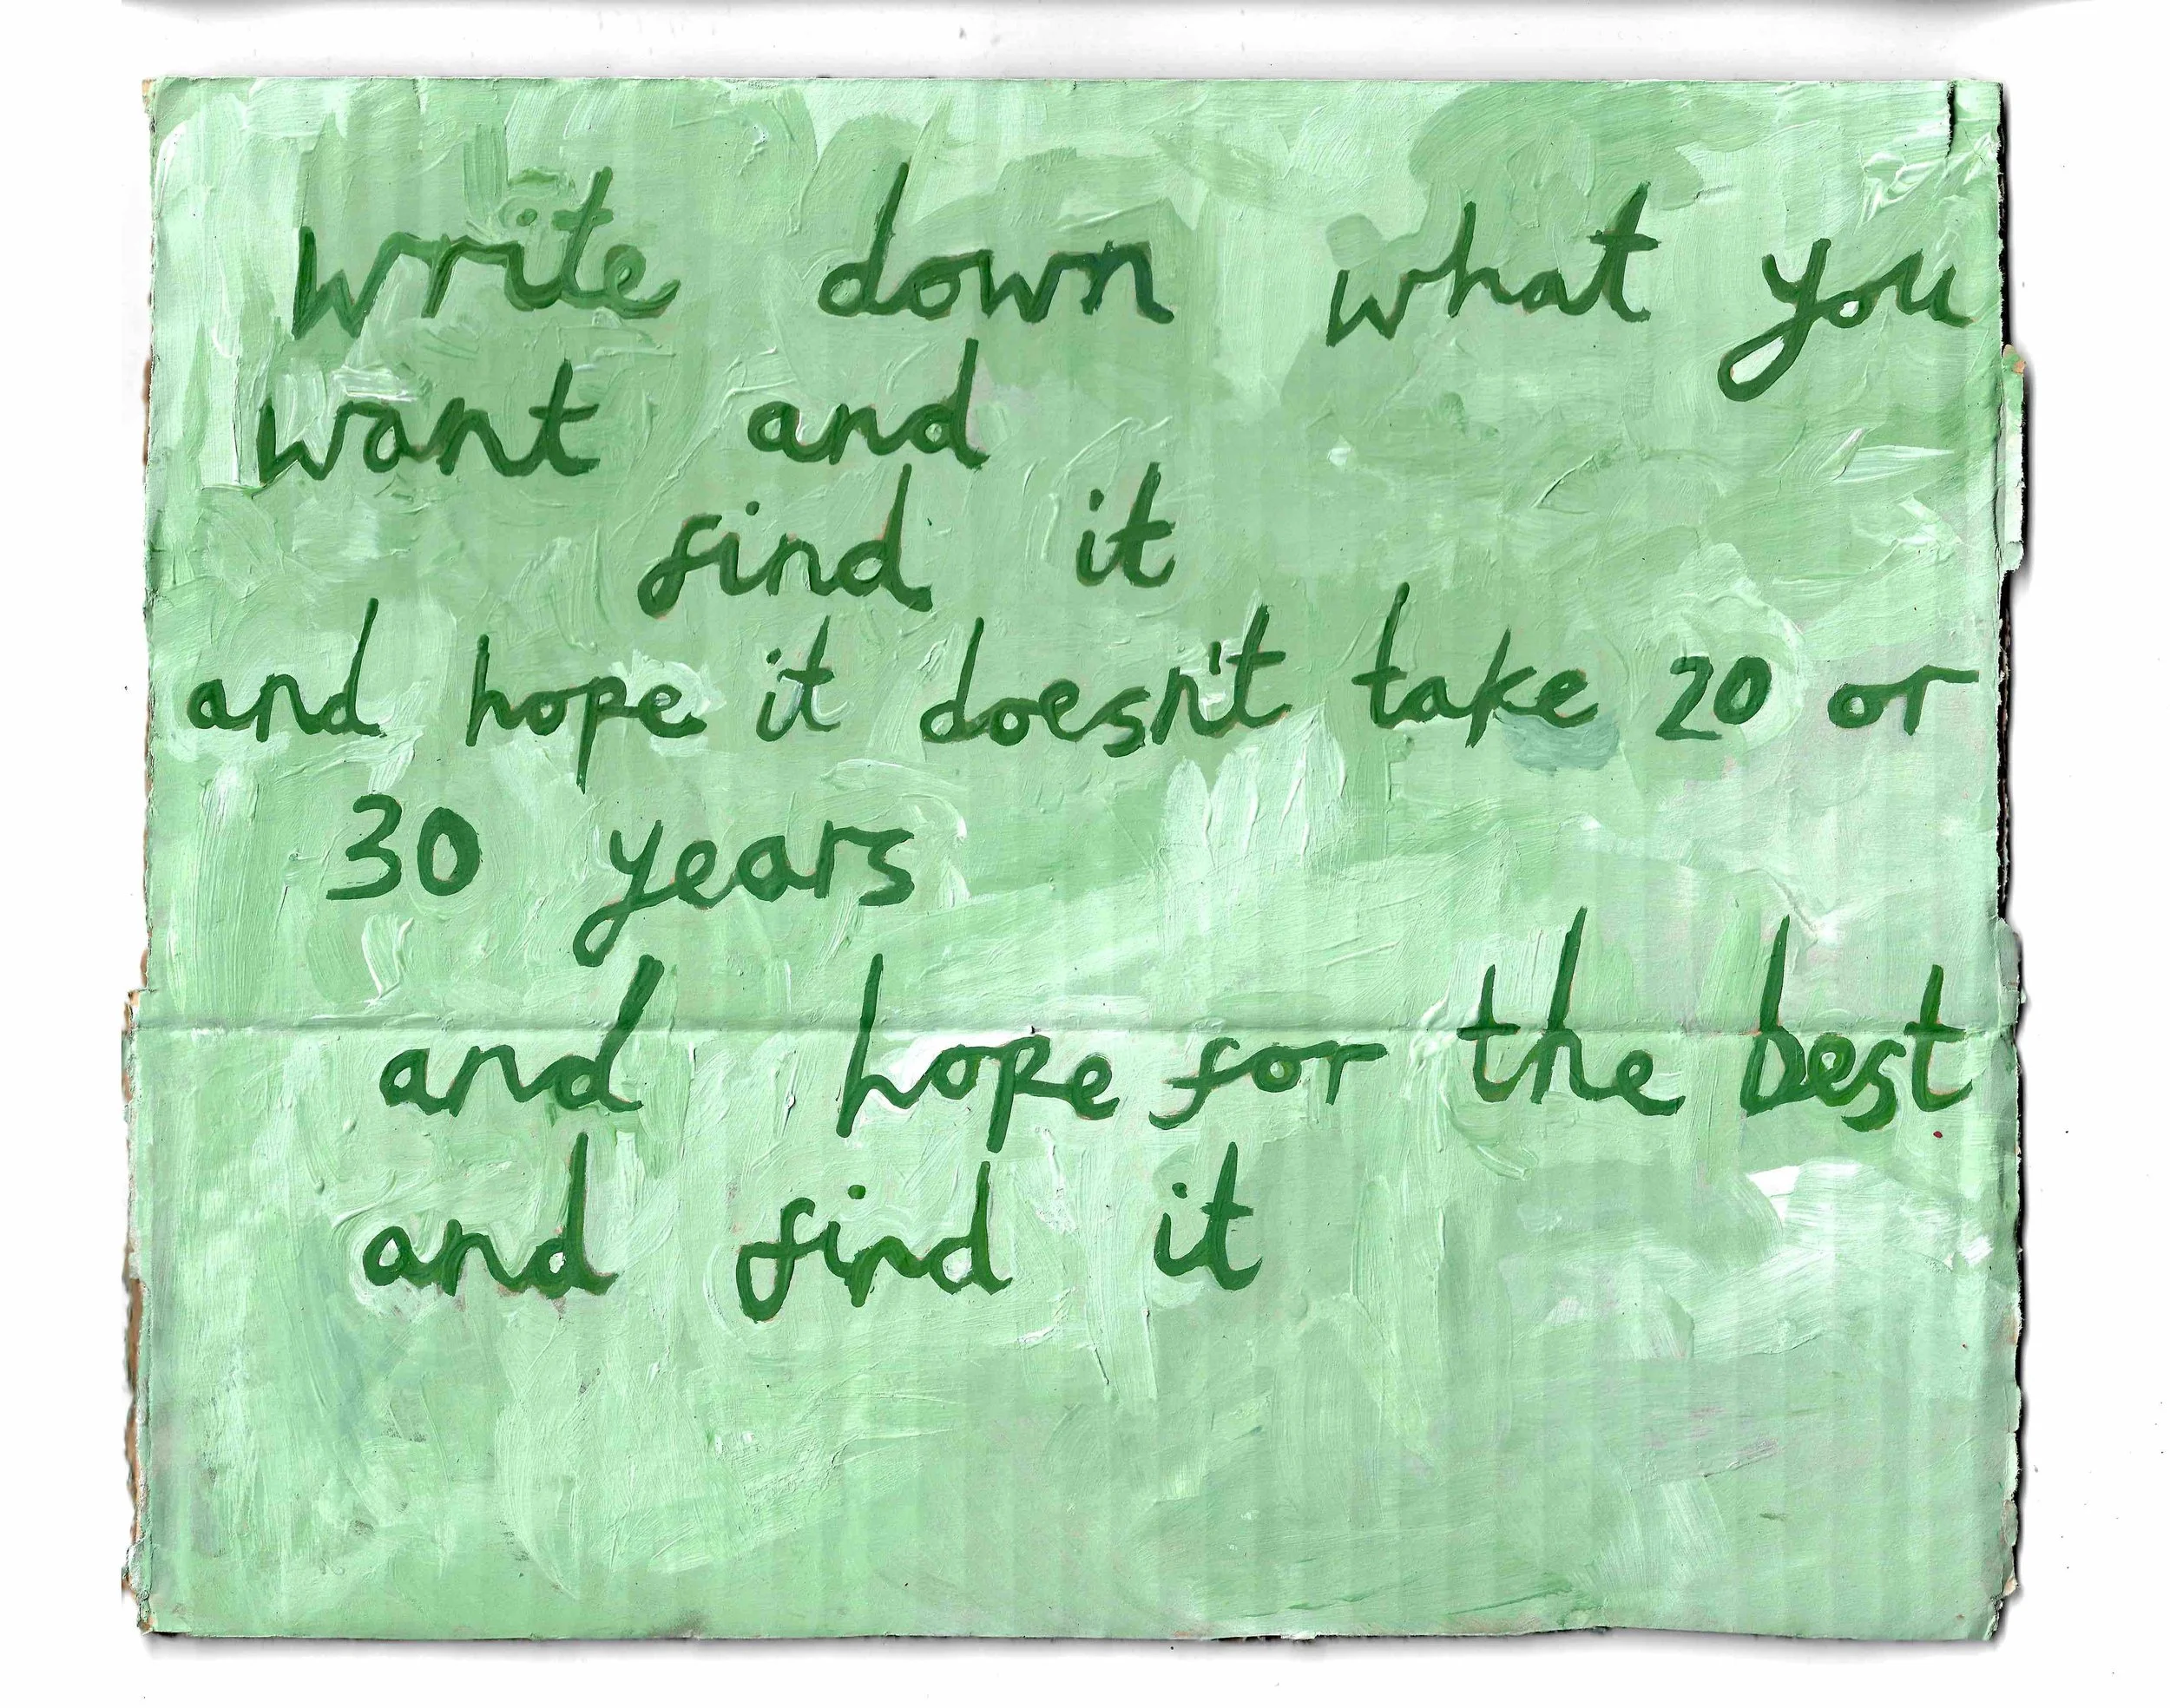 write down what you
want and
find it
and hope it doesn't take 20 or
30 years
and hope for the best
and find it